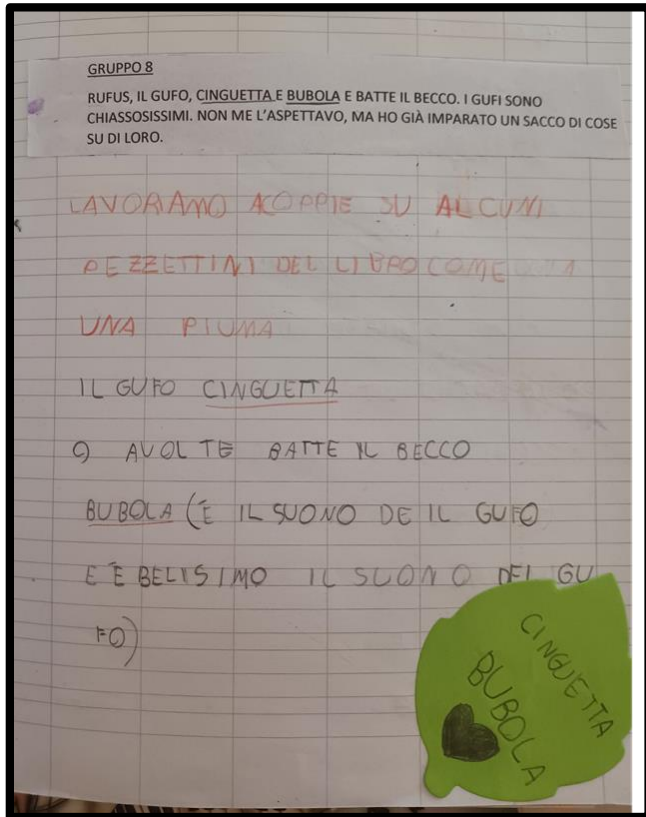 GRUPPO 8
RUFUS, IL GUFO, CINGUETTA E BUBOLA E BATTE IL BECCO. I GUFI SONO
CHIASSOSISSIMI. NON ME L'ASPETTAVO, MA HO GIÀ IMPARATO UN SACCO DI COSE
SU DI LORO.
LAVORIAMO ACOPPIE SU ALCUNI
PEZZETTINI DEL LIBRO COME
UNA PIUMA
IL GUFO CINGUETTA
AVOLTE BATTE IL BECCO
BUBOLA (È IL SUONO DE IL GUFO
E È BELISIMO IL SUONO DEL GU
FO)
CINGUETTA
BUBOLA